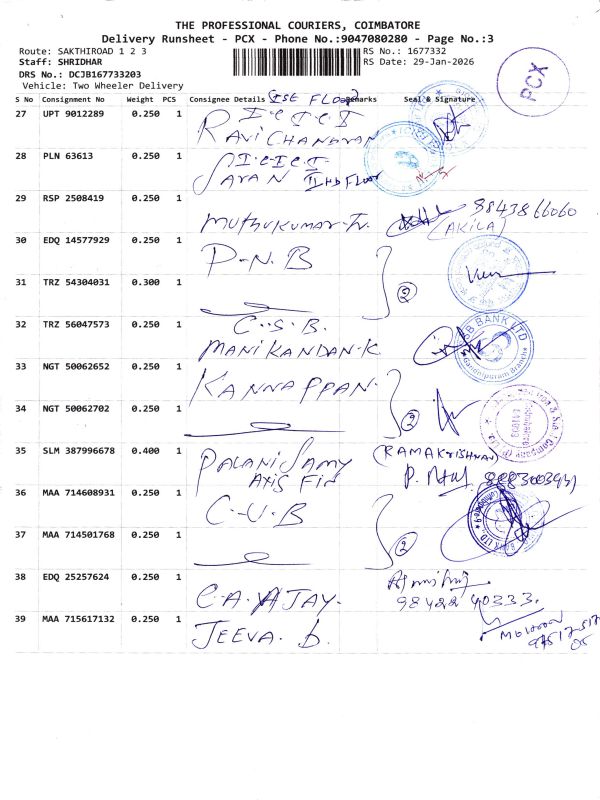 THE PROFESSIONAL COURIERS, COIMBATORE
Delivery Runsheet - PCX - Phone No.:9047080280 - Page No.:3
Route: SAKTHIROAD 1 2 3
RS No.: 1677332
Staff: SHRIDHAR
RS Date: 29-Jan-2026
DRS No.: DCJB167733203
Vehicle: Two Wheeler Delivery
PCX
S No Consignment No Weight PCS Consignee Details Remarks Seal & Signature
27 UPT 9012289 0.250 1 I-C-I-C-I
RAVI CHANDRAN
28 PLN 63613 0.250 1 I-C-I-C-I
SARAN IInd FLOOR
29 RSP 2508419 0.250 1 MUTHUKUMAR-Tv. 8843866060
(AKILA)
30 EDQ 14577929 0.250 1 P-N.B
31 TRZ 54304031 0.300 1 2
32 TRZ 56047573 0.250 1 C.S.B.
MANIKANDAN-K
CSB BANK LTD
Gandhipuram Branch
33 NGT 50062652 0.250 1 KANNAPPAN.
34 NGT 50062702 0.250 1 2
35 SLM 387996678 0.400 1 PALANISAMY (RAMAKRISHNAN)
AXIS Fin
36 MAA 714608931 0.250 1 C-U-B
37 MAA 714501768 0.250 1 2
38 EDQ 25257624 0.250 1 C.A. AJAY.
98422 40333.
39 MAA 715617132 0.250 1 JEEVA. D.